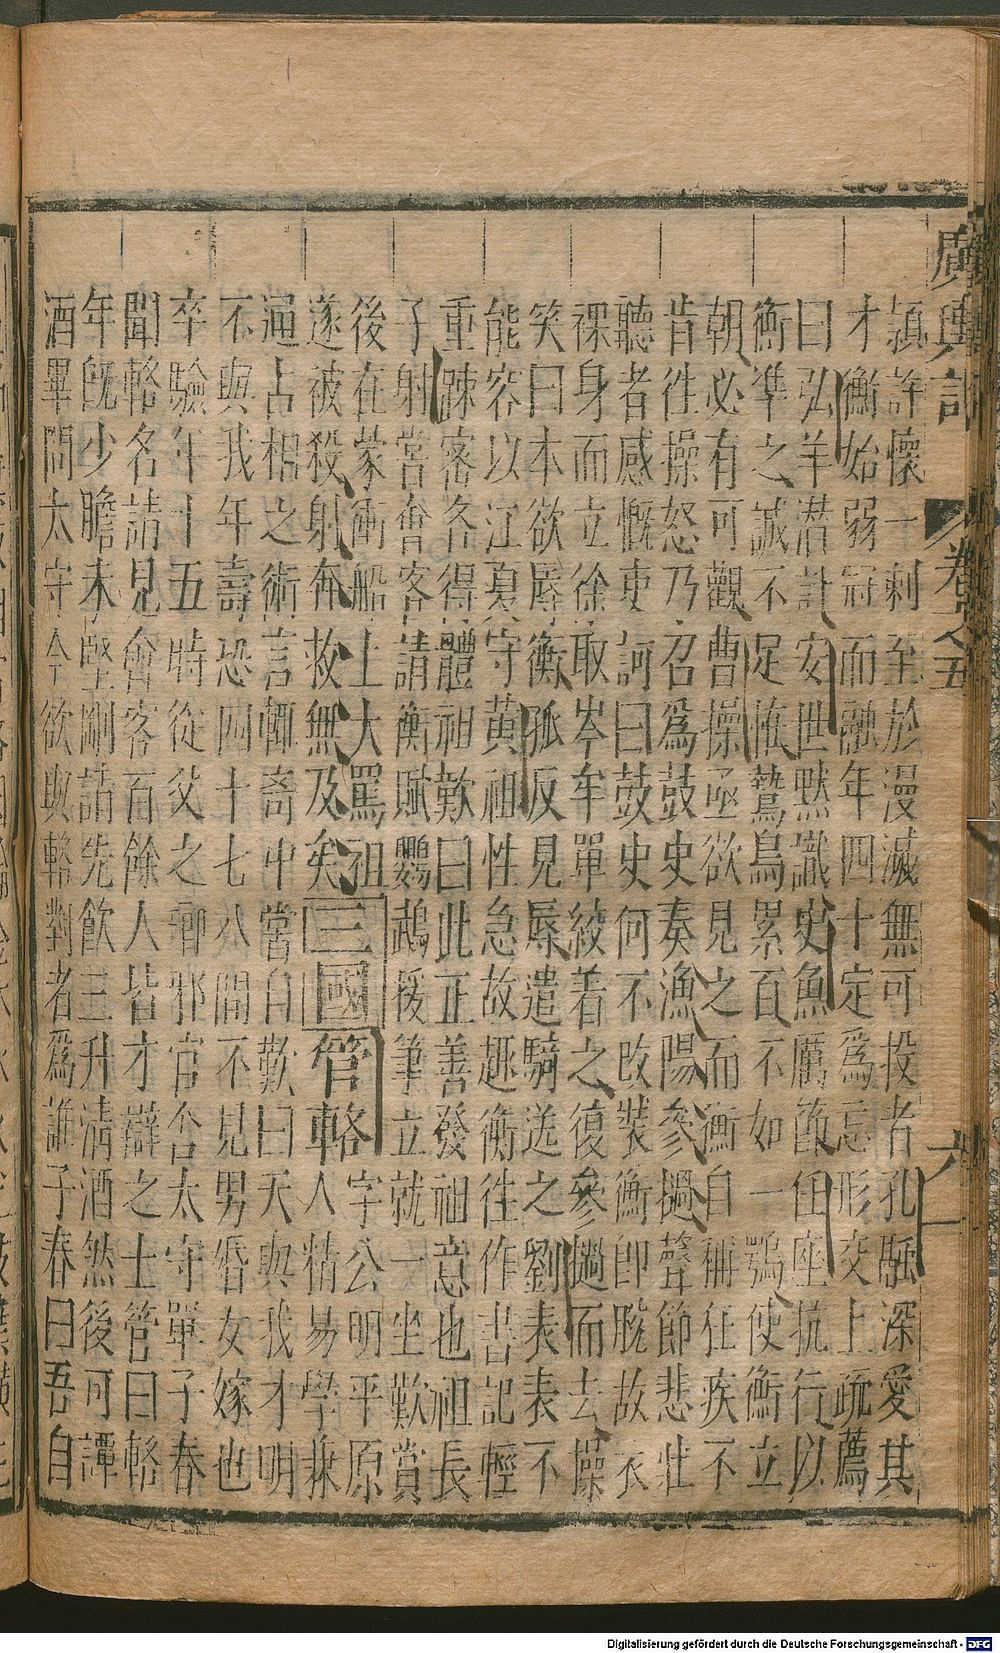 廣輿記 卷之五 六
潁許懷一刺至於漫滅無可投者孔融深愛其
才衡始弱冠而融年四十定爲忘形交上疏薦
曰弘羊潛計安世默識史魚厲節任座抗行以
衡準之誠不足恠鷙鳥累百不如一鶚使衡立
朝必有可觀曹操亟欲見之而衡自稱狂疾不
肯往操怒乃召爲鼓史奏漁陽參撾聲節悲壯
聽者感慨吏訶曰鼓史何不改裝衡即脫故衣
裸身而立徐取岑牟單絞着之復參撾而去操
笑曰本欲辱衡孤反見辱遣騎送之劉表表不
能容以江夏守黄祖性急故趣衡往作書記輕
重踈密各得體祖歎曰此正善發祖意也祖長
子射嘗會客請衡賦鸚鵡援筆立就一坐歎賞
後在蒙衝船上大罵祖
遂被殺射奔救無及矣
三國
管輅
字公明平原
人精易學兼
通占相之術言輒奇中嘗自歎曰天與我才明
不與我年壽恐四十七八間不見男婚女嫁也
卒驗年十五時從父之瑯邪官舍太守單子春
聞輅名請見會客百餘人皆才辯之士管曰輅
年旣少膽未堅剛請先飲三升清酒然後可譚
酒畢問太守今欲與輅對者爲誰子春曰吾自
Digitalisierung gefördert durch die Deutsche Forschungsgemeinschaft - DFG